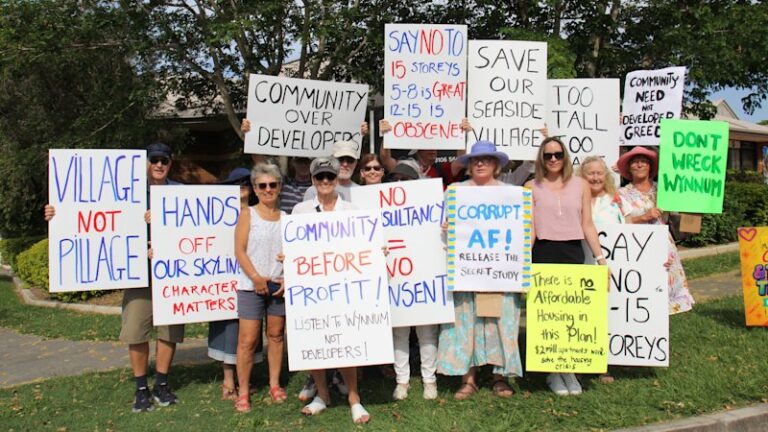 COMMUNITY
OVER
DEVELOPERS
SAY NO TO
15 STOREYS
5-8 is GREAT
12-15 IS
OBSCENE!
SAVE
OUR
SEASIDE
VILLAGE
TOO
TALL
TOO
COMMUNITY
NEED
NOT
DEVELOPER
GREED
DON'T
WRECK
WYNNUM
VILLAGE
NOT
PILLAGE
HANDS
OFF
OUR SKYLINE
CHARACTER
MATTERS
COMMUNITY
BEFORE
PROFIT!
LISTEN TO WYNNUM
NOT
DEVELOPERS!
NO
SULTANCY
=
NO
NSENT
CORRUPT
AF!
RELEASE THE
SECRET STUDY
There is No
Affordable
Housing in
this Plan!
$2 million apartments wont
solve the housing
crisis
SAY
NO TO
-15
STOREYS